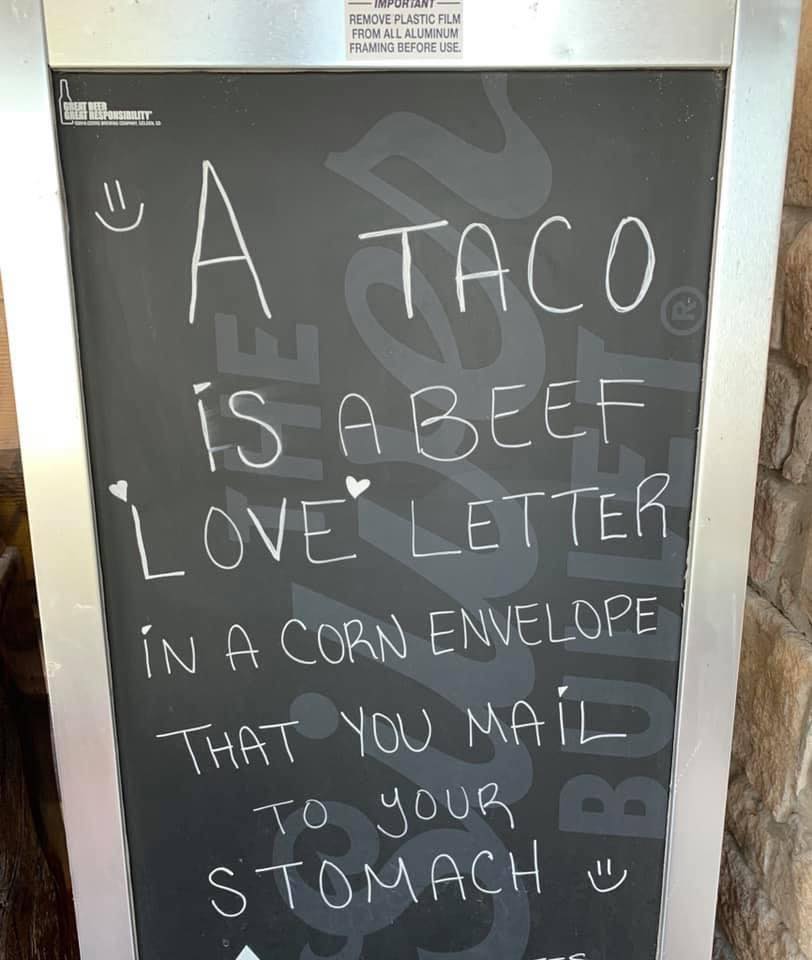 IMPORTANT
REMOVE PLASTIC FILM
FROM ALL ALUMINUM
FRAMING BEFORE USE.
GREAT BEER
GREAT RESPONSIBILITY
A TACO
iS A BEEF
LOVE LETTER
iN A CORN ENVELOPE
THAT YOU MAiL
TO YOUR
STOMACH
THE
Silver
BULLET®